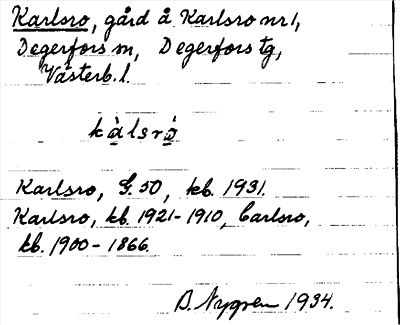 Karlsro, gård å Karlsro nr 1,
Degerfors sn, Degerfors tg,
Västerb. l.
kàlsrò
Karlsro, G. 50, kb. 1931.
Karlsro, kb. 1921-1910, Carlsro,
kb. 1900-1866.
B. Nygren 1934.